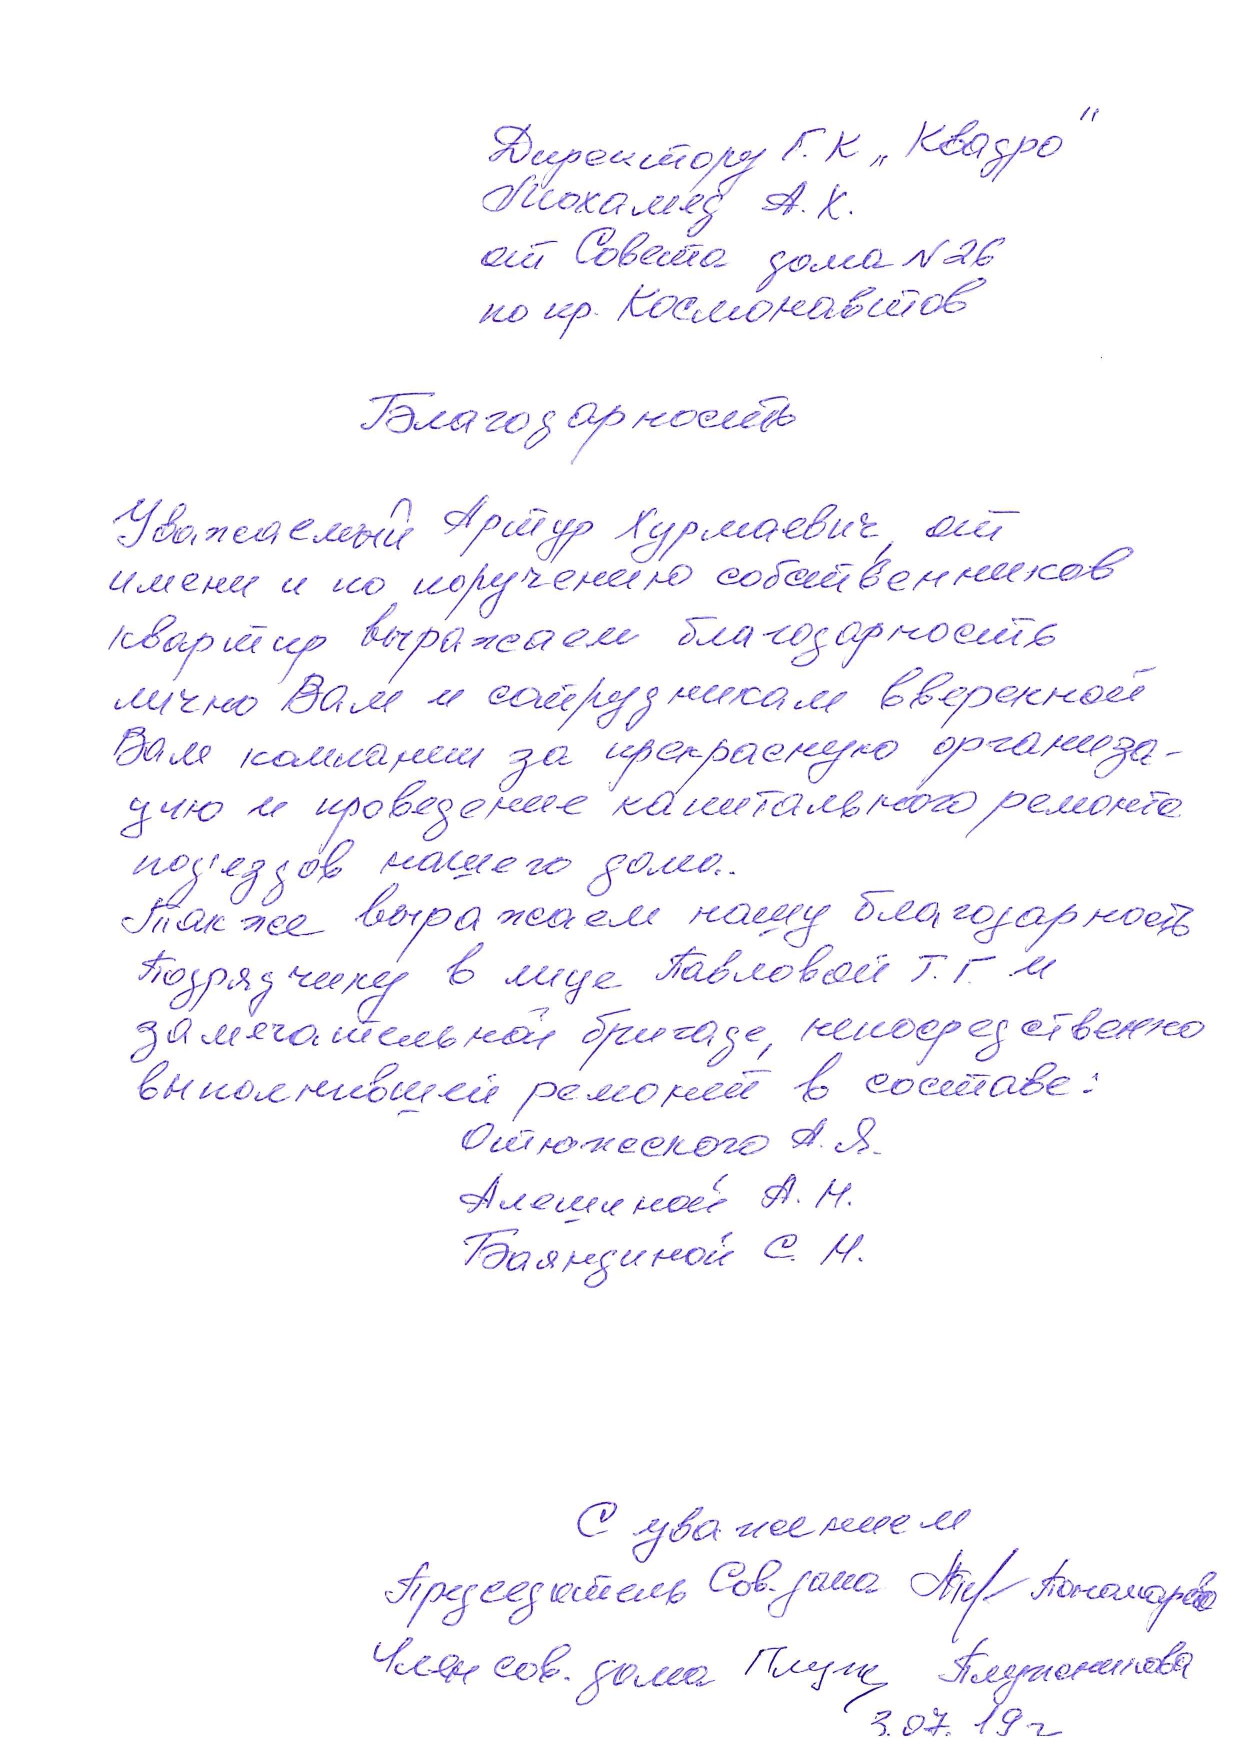 Директору Г.К „Квадро"
Мохамед А.Х.
от Совета дома N26
по пр. Космонавтов
Благодарность
Уважаемый Артур Хурмаевич, от
имени и по поручению собственников
квартир выражаем благодарность
лично Вам и сотрудникам вверенной
Вам компании за прекрасную организа-
цию и проведение капитального ремонта
под'ездов нашего дома.
Также выражаем нашу благодарность
Подрядчику в лице Павловой Т.Г. и
замечательной бригаде, непосредственно
выполнившей ремонт в составе:
Отюжского А.Я.
Алешиной А.Н.
Баяндиной С.Н.
С уважением
Председатель Сов. дома Пономарёва
Член сов. дома Плужникова
3.07.19г